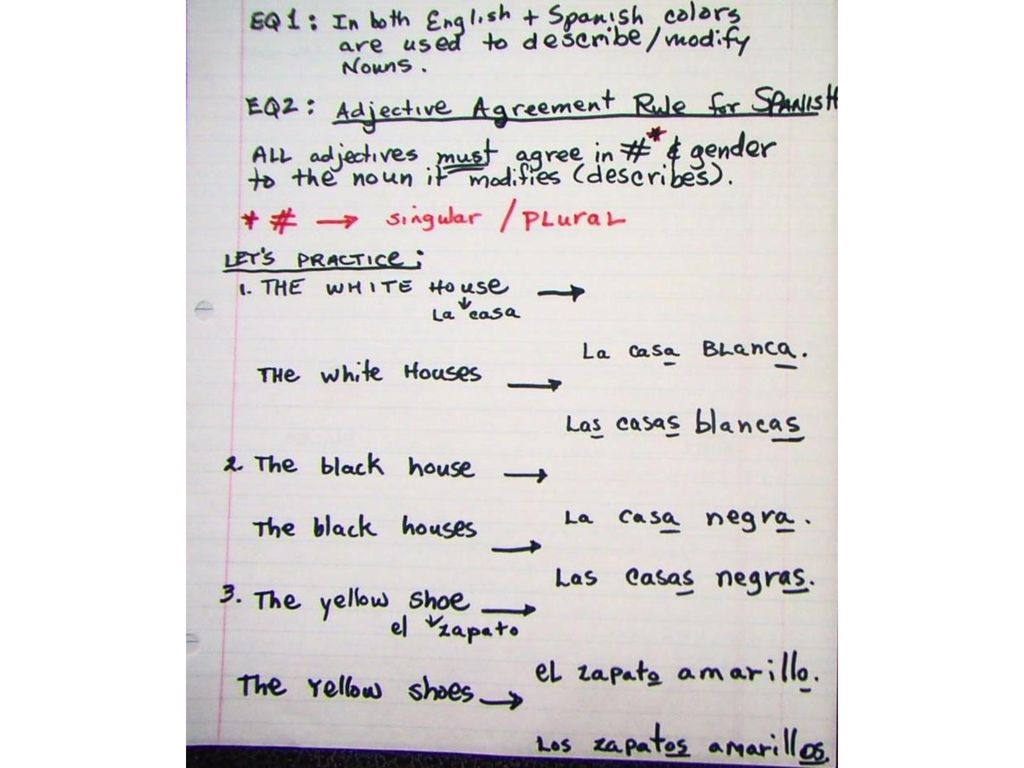 EQ1: In both English + Spanish colors
are used to describe/modify
Nouns.
EQ2: Adjective Agreement Rule for SPANISH
ALL adjectives must agree in #* & gender
to the noun it modifies (describes).
* # → singular / PLural
LET'S PRACTICE:
1. THE WHITE House →
La casa
La casa BLanca.
THe white Houses →
Las casas blancas
2. The black house →
La casa negra.
The black houses →
Las casas negras.
3. The yellow shoe →
el zapato
eL zapato amarillo.
The Yellow shoes →
Los zapatos amarillos